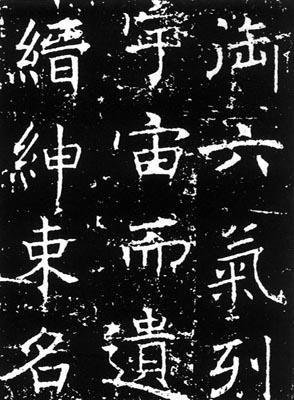 御六氣列
宇宙而遺
縉紳束名